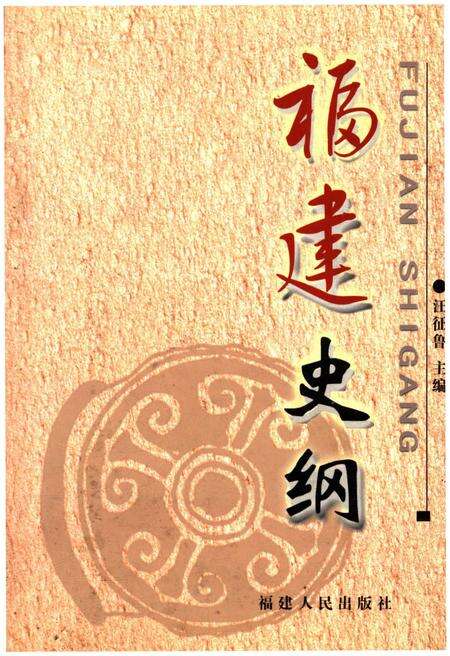 福建史纲
FUJIAN SHIGANG
汪征鲁 主编
福建人民出版社